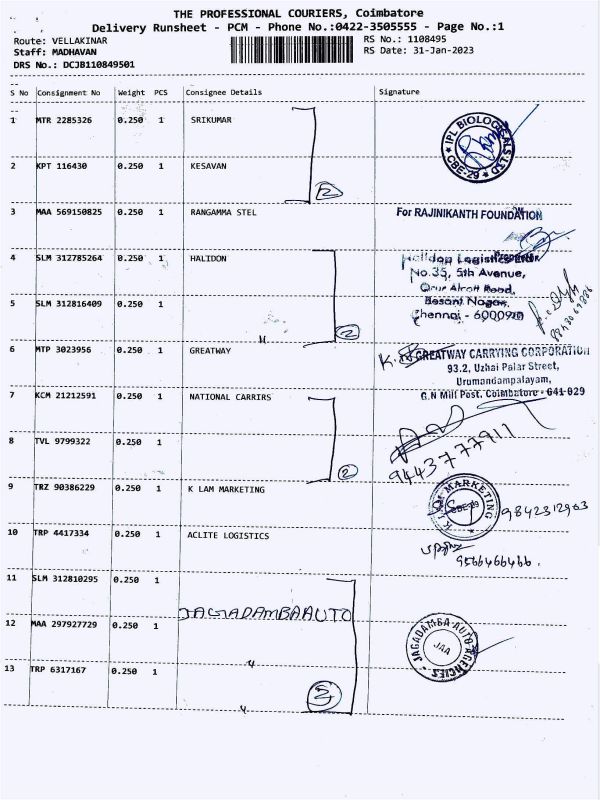 THE PROFESSIONAL COURIERS, Coimbatore
Delivery Runsheet - PCM - Phone No.:0422-3505555 - Page No.:1
Route: VELLAKINAR
RS No.: 1108495
Staff: MADHAVAN
RS Date: 31-Jan-2023
DRS No.: DCJB110849501
S No Consignment No Weight PCS Consignee Details Signature
1 MTR 2285326 0.250 1 SRIKUMAR
IPL BIOLOGICALS LTD
CBE-29
2 KPT 116430 0.250 1 KESAVAN
2
3 MAA 569150825 0.250 1 RANGAMMA STEL
For RAJINIKANTH FOUNDATION
4 SLM 312785264 0.250 1 HALIDON
Halidon Logistics
No.35, 5th Avenue,
Besant Nagar,
5 SLM 312816409 0.250 1
2
Chennai - 600090
6 MTP 3023956 0.250 1 GREATWAY
GREATWAY CARRYING CORPORATION
93.2, Uzhai Palar Street,
Urumandampalayam,
G.N Mill Post, Coimbatore - 641 029
7 KCM 21212591 0.250 1 NATIONAL CARRIRS
8 TVL 9799322 0.250 1
2
9443777911
9 TRZ 90386229 0.250 1 K LAM MARKETING
MARKETING
9842312963
10 TRP 4417334 0.250 1 ACLITE LOGISTICS
9566466466.
11 SLM 312810295 0.250 1
JAGADAMBAAUTO
12 MAA 297927729 0.250 1
JAGADAMBA AUTO AGENCIES
JAA
13 TRP 6317167 0.250 1
3